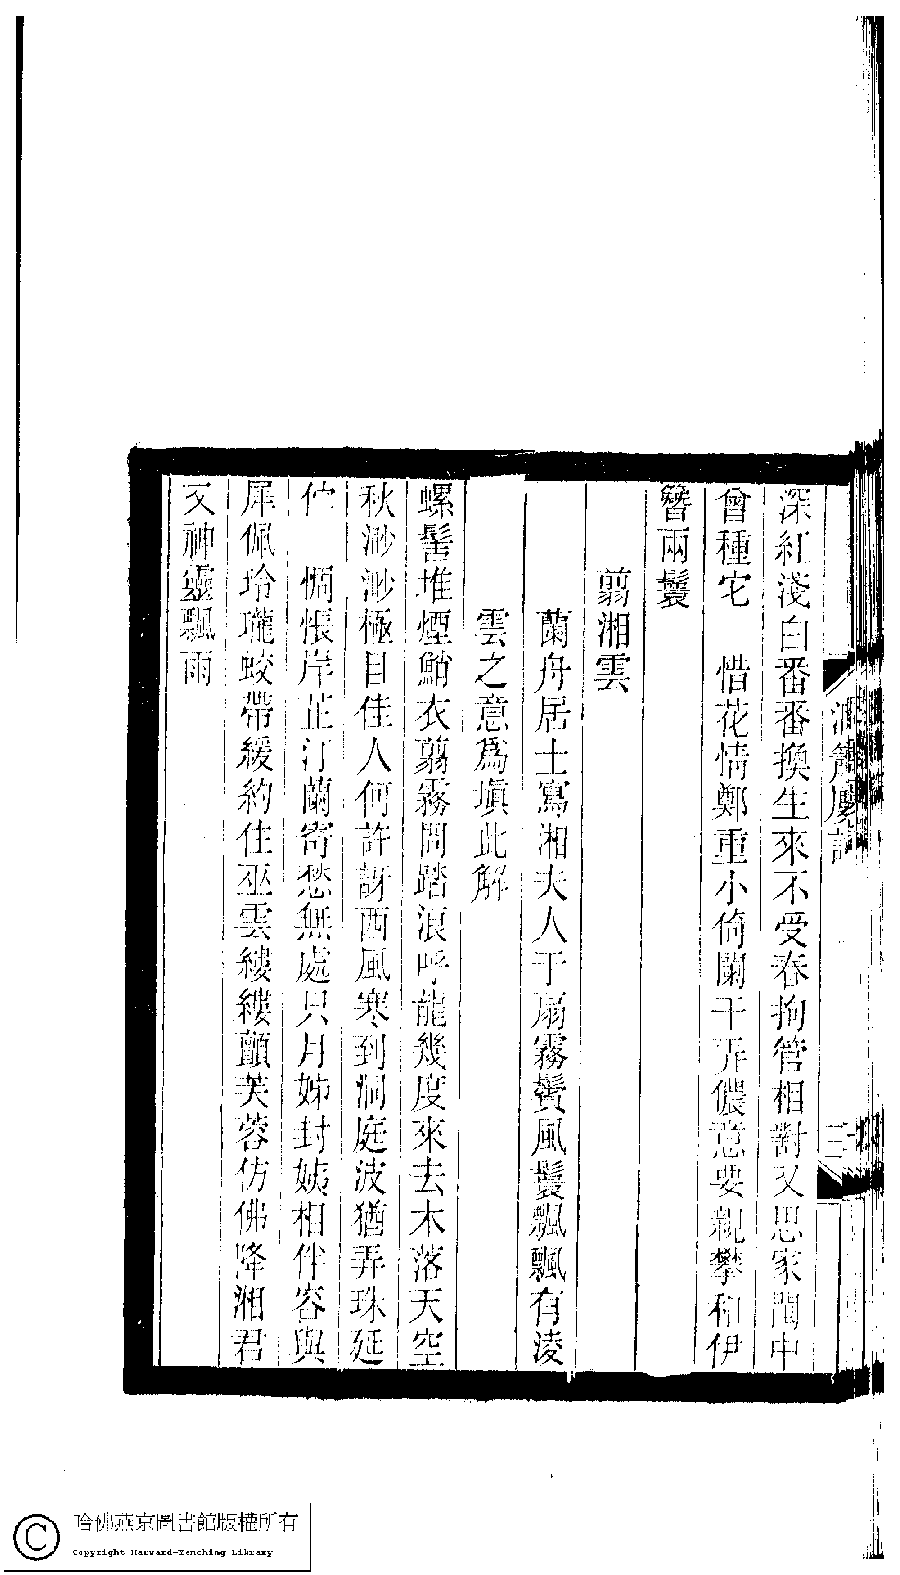 深紅淺白番番換生來不受春拘管相對又思家閨中
曾種宅　惜花情鄭重小倚闌干弄儂意要親攀和伊
簪兩鬟
翦湘雲
蘭舟居士寫湘夫人于扇霧鬢風鬟飄飄有淩
雲之意爲塡此解
螺髻堆煙鮹衣翦霧問踏浪呼龍幾度來去木落天空
秋渺渺極目佳人何許訝西風寒到洞庭波猶弄珠延
伫　惆悵岸芷汀蘭寄愁無處只月姊封姨相伴容與
犀佩玲瓏蛟帶緩約住巫雲縷縷顫芙蓉仿佛降湘君
又神靈飄雨
三
哈佛燕京圖書館版權所有
Copyright Harvard-Yenching Library